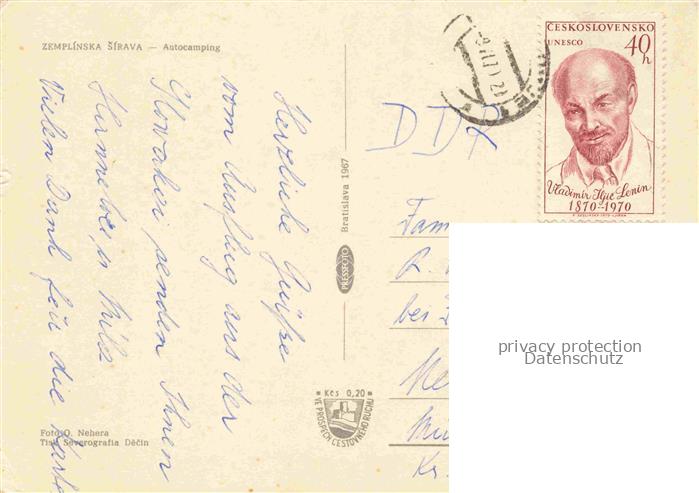 ZEMPLÍNSKA ŠÍRAVA — Autocamping
Herzliche Grüße
vom Ausflug aus der
Slovakei senden Ihnen
Vielen Dank für die Karte
Foto O. Nehera
Tisk Severografia Děčín
Bratislava 1967
PRESSFOTO
Kčs 0,20
VE PROSPĚCH CESTOVNÍHO RUCHU
ČESKOSLOVENSKO
UNESCO
40 h
Vladimír Iljič Lenin
1870-1970
DDR
Fam
bei
privacy protection
Datenschutz